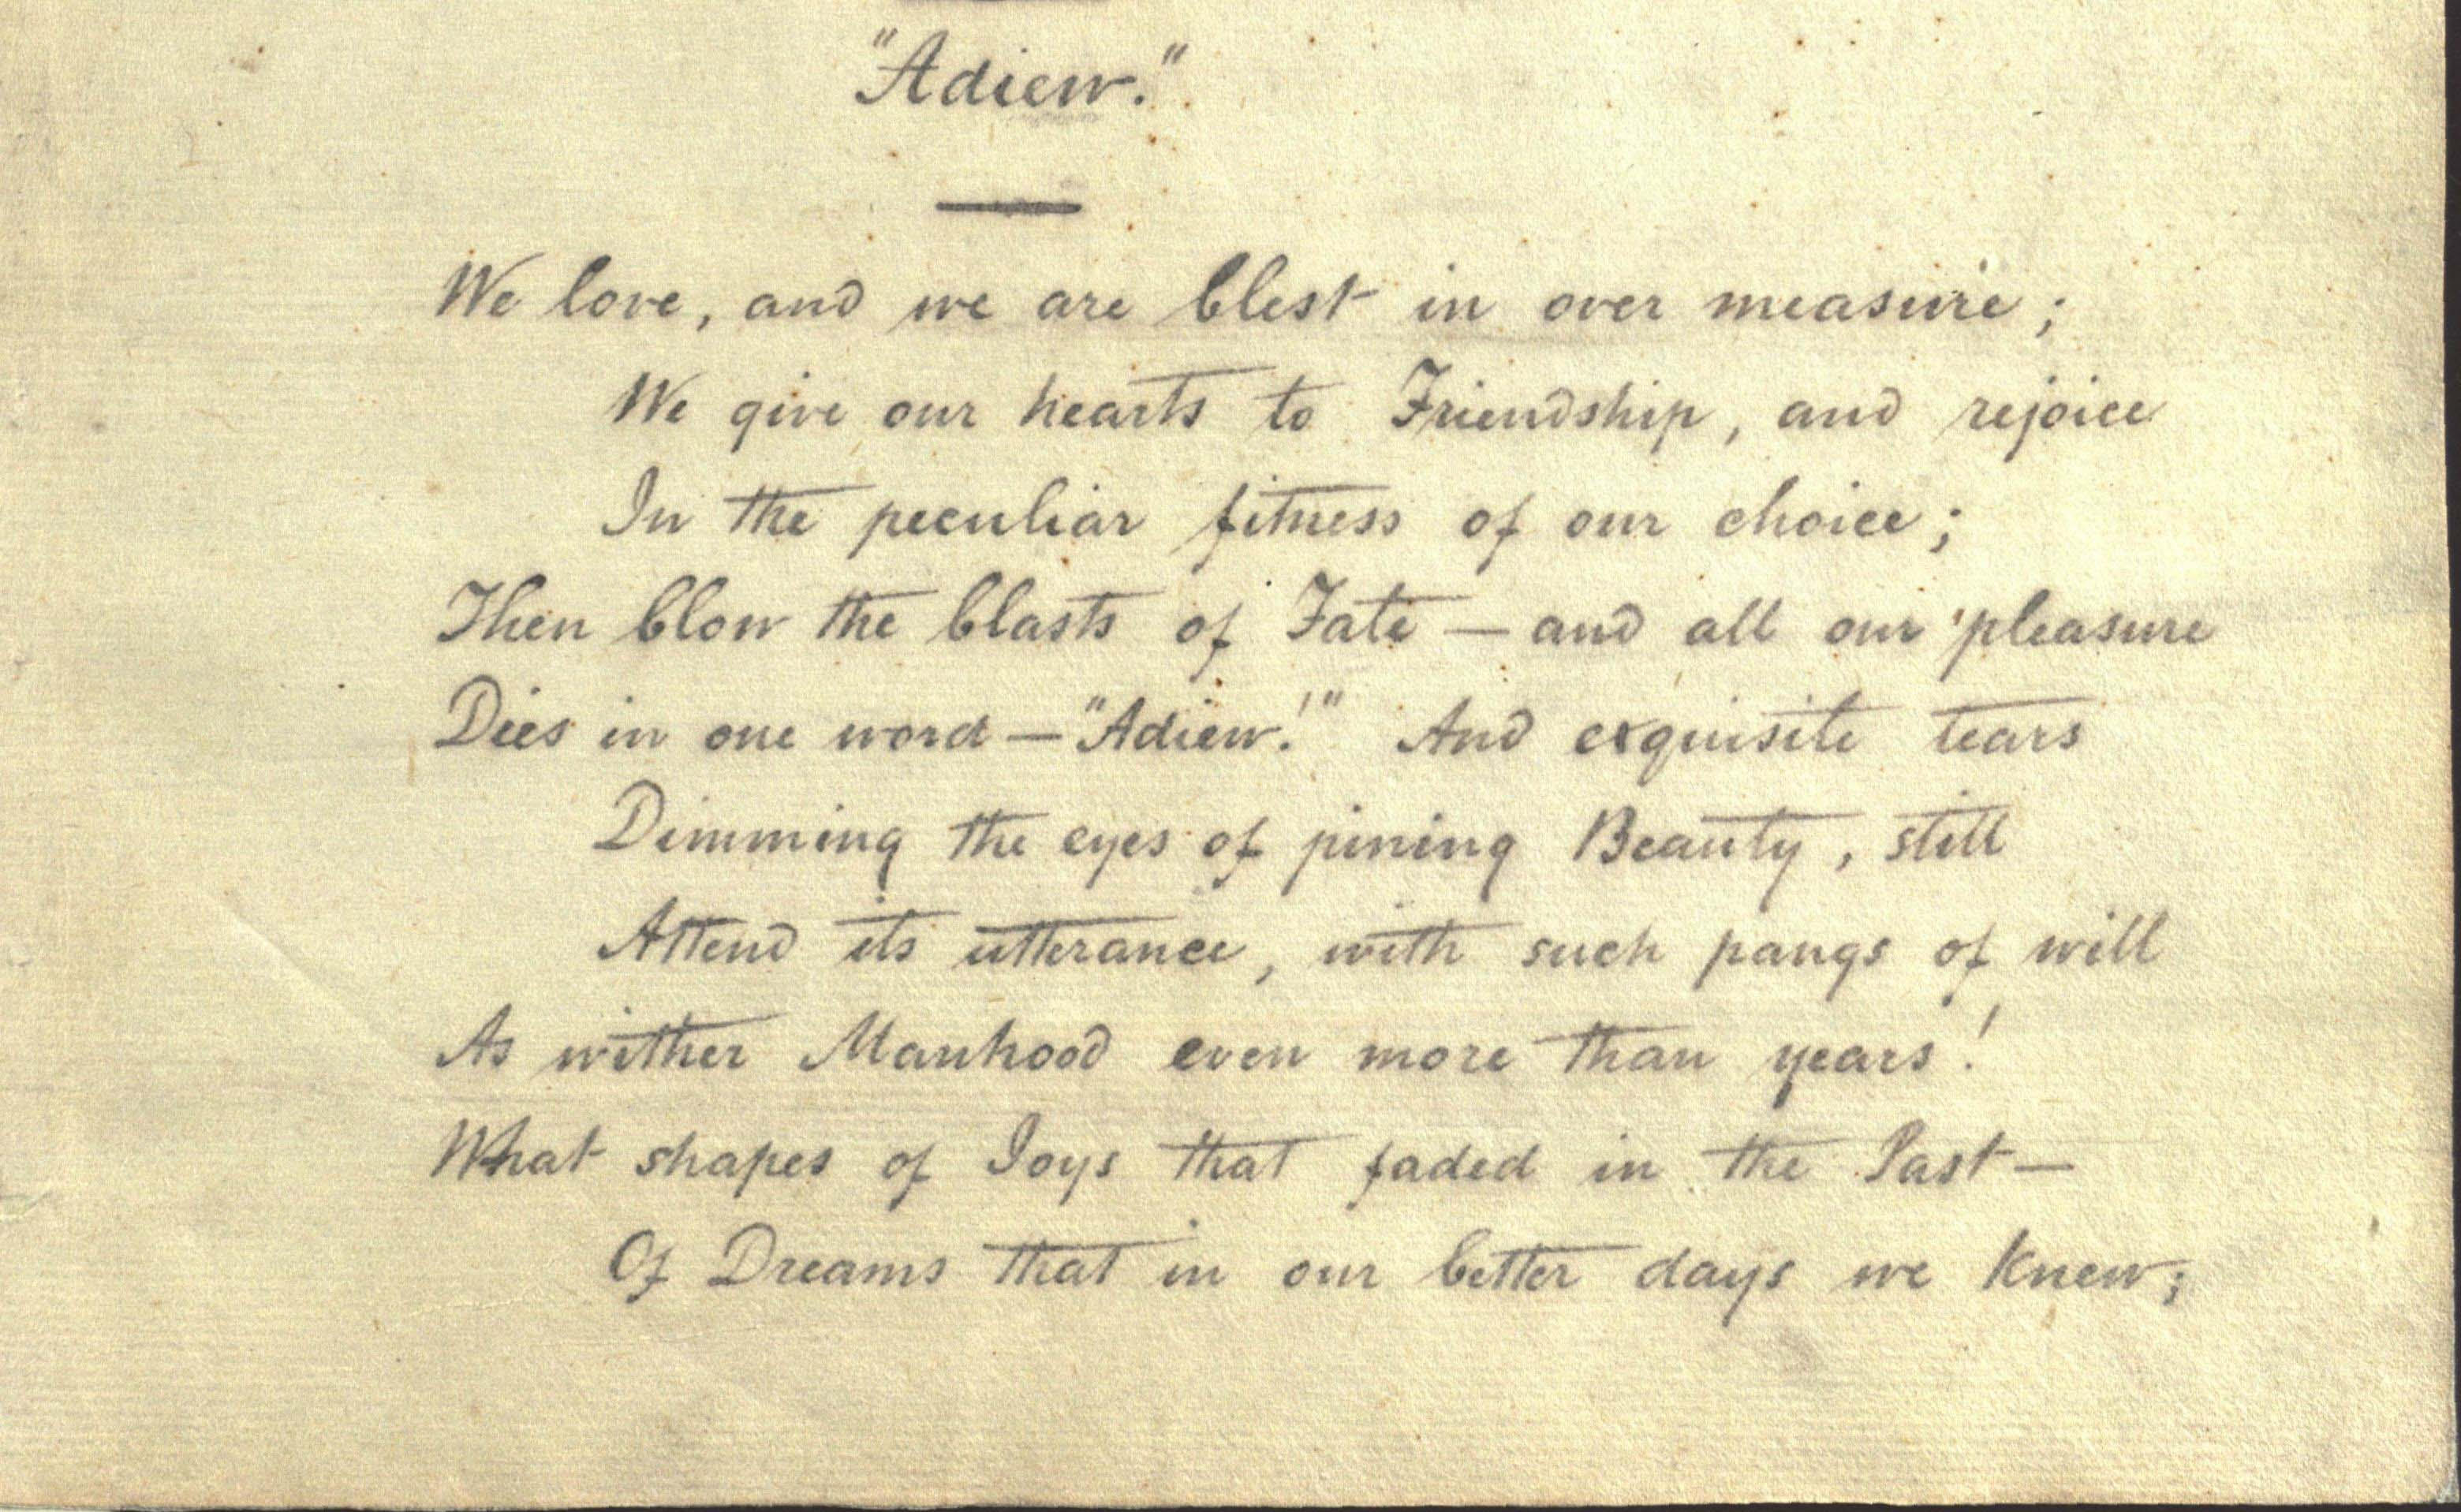 "Adieu."
We love, and we are blest in over measure;
We give our hearts to Friendship, and rejoice
In the peculiar fitness of our choice;
Then blow the blasts of Fate — and all our pleasure
Dies in one word — "Adieu!" And exquisite tears
Dimming the eyes of pining Beauty, still
Attend its utterance, with such pangs of will
As wither Manhood even more than years!
What shapes of Joys that faded in the Past —
Of Dreams that in our better days we knew;